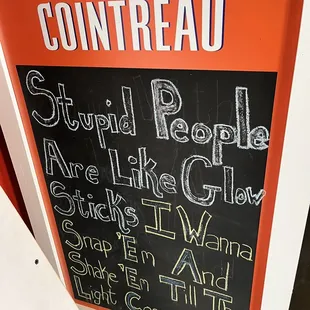 COINTREAU
Stupid People
Are Like Glow
Sticks I Wanna
Snap 'Em And
Shake 'Em Till Th
Light Co